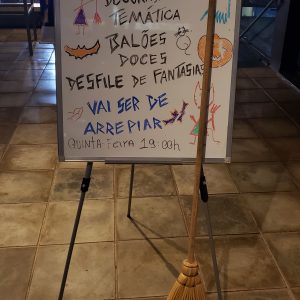 TEMÁTICA
BALÕES
DOCES
DESFILE DE FANTASIAS
VAI SER DE
ARREPIAR
QUINTA-FEIRA 19:00h